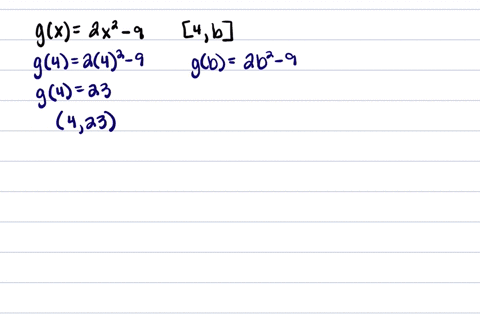 g(x) = 2x² - 9 [4, b]
g(4) = 2(4)² - 9 g(b) = 2b² - 9
g(4) = 23
(4, 23)